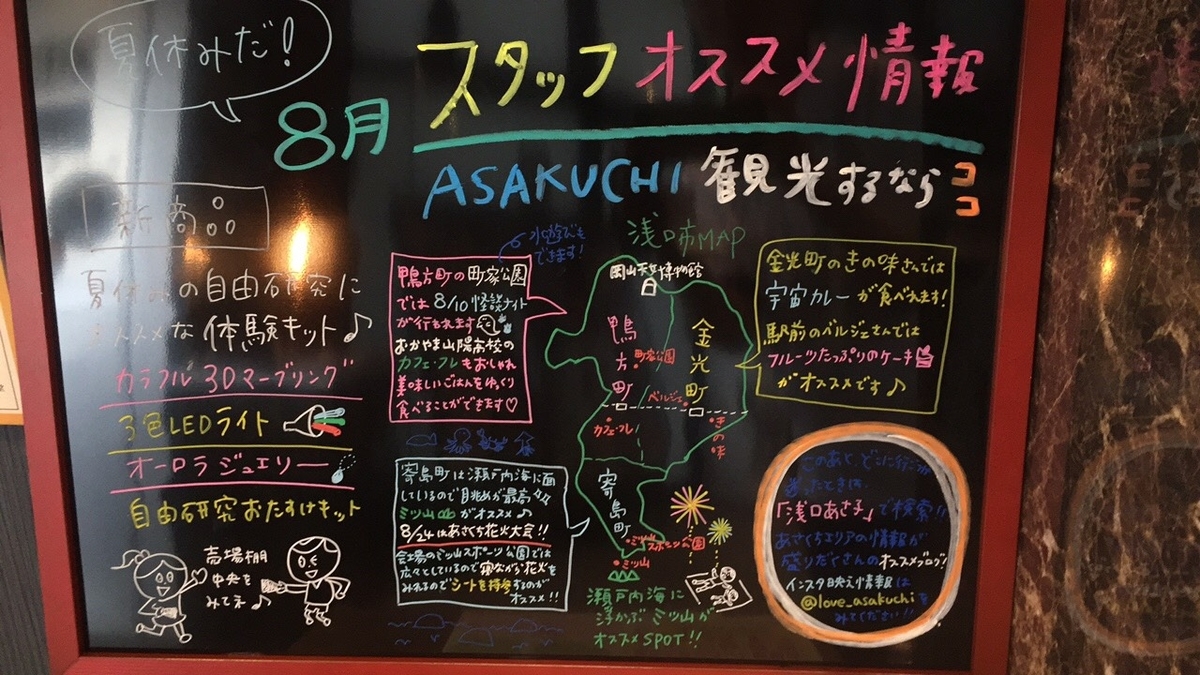 夏休みだ!
8月
スタッフ オススメ 情報
ASAKUCHI 観光するなら ココ
新商品
夏休みの自由研究に
オススメな 体験キット♪
カラフル 3Dマーブリング
3色LEDライト
オーロラジュエリー
自由研究おたすけキット
売場棚
中央を
みてネ♪
水遊びも
できます!
鴨方町の町家公園
では 8/10 怪談ナイト
が行われます
おかやま山陽高校の
カフェ・フレもおしゃれ
美味しいごはんをゆっくり
食べることができます♡
寄島町は瀬戸内海に面
しているので眺めが最高♪♪
ミツ山がオススメ♪
8/24はあさくち花火大会!!
会場のミツ山スポーツ公園では
広々としているので寝ながら花火を
みれるのでシートを持参するのが
オススメ!!
浅口市MAP
岡山天文博物館
鴨方町
町家公園
金光町
ベルジェ
カフェ・フレ
きの味
寄島町
ミツ山スポーツ公園
ミツ山
瀬戸内海に
浮かぶ ミツ山が
オススメSPOT!!
金光町のきの味さんでは
宇宙カレーが食べれます!
駅前のベルジェさんでは
フルーツたっぷりのケーキ
がオススメです♪
このあと、どこに行こうか
迷ったときは、
「浅口あさ子」で検索!!
あさくちエリアの情報が
盛りだくさんのオススメブログ!
インスタ映え情報は
@love_asakuchiを
みてください!!